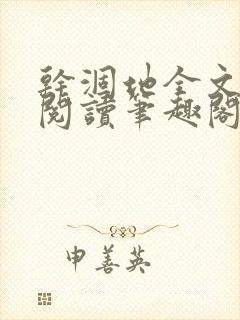 幹涸地全文
閱讀筆趣閣
申善英